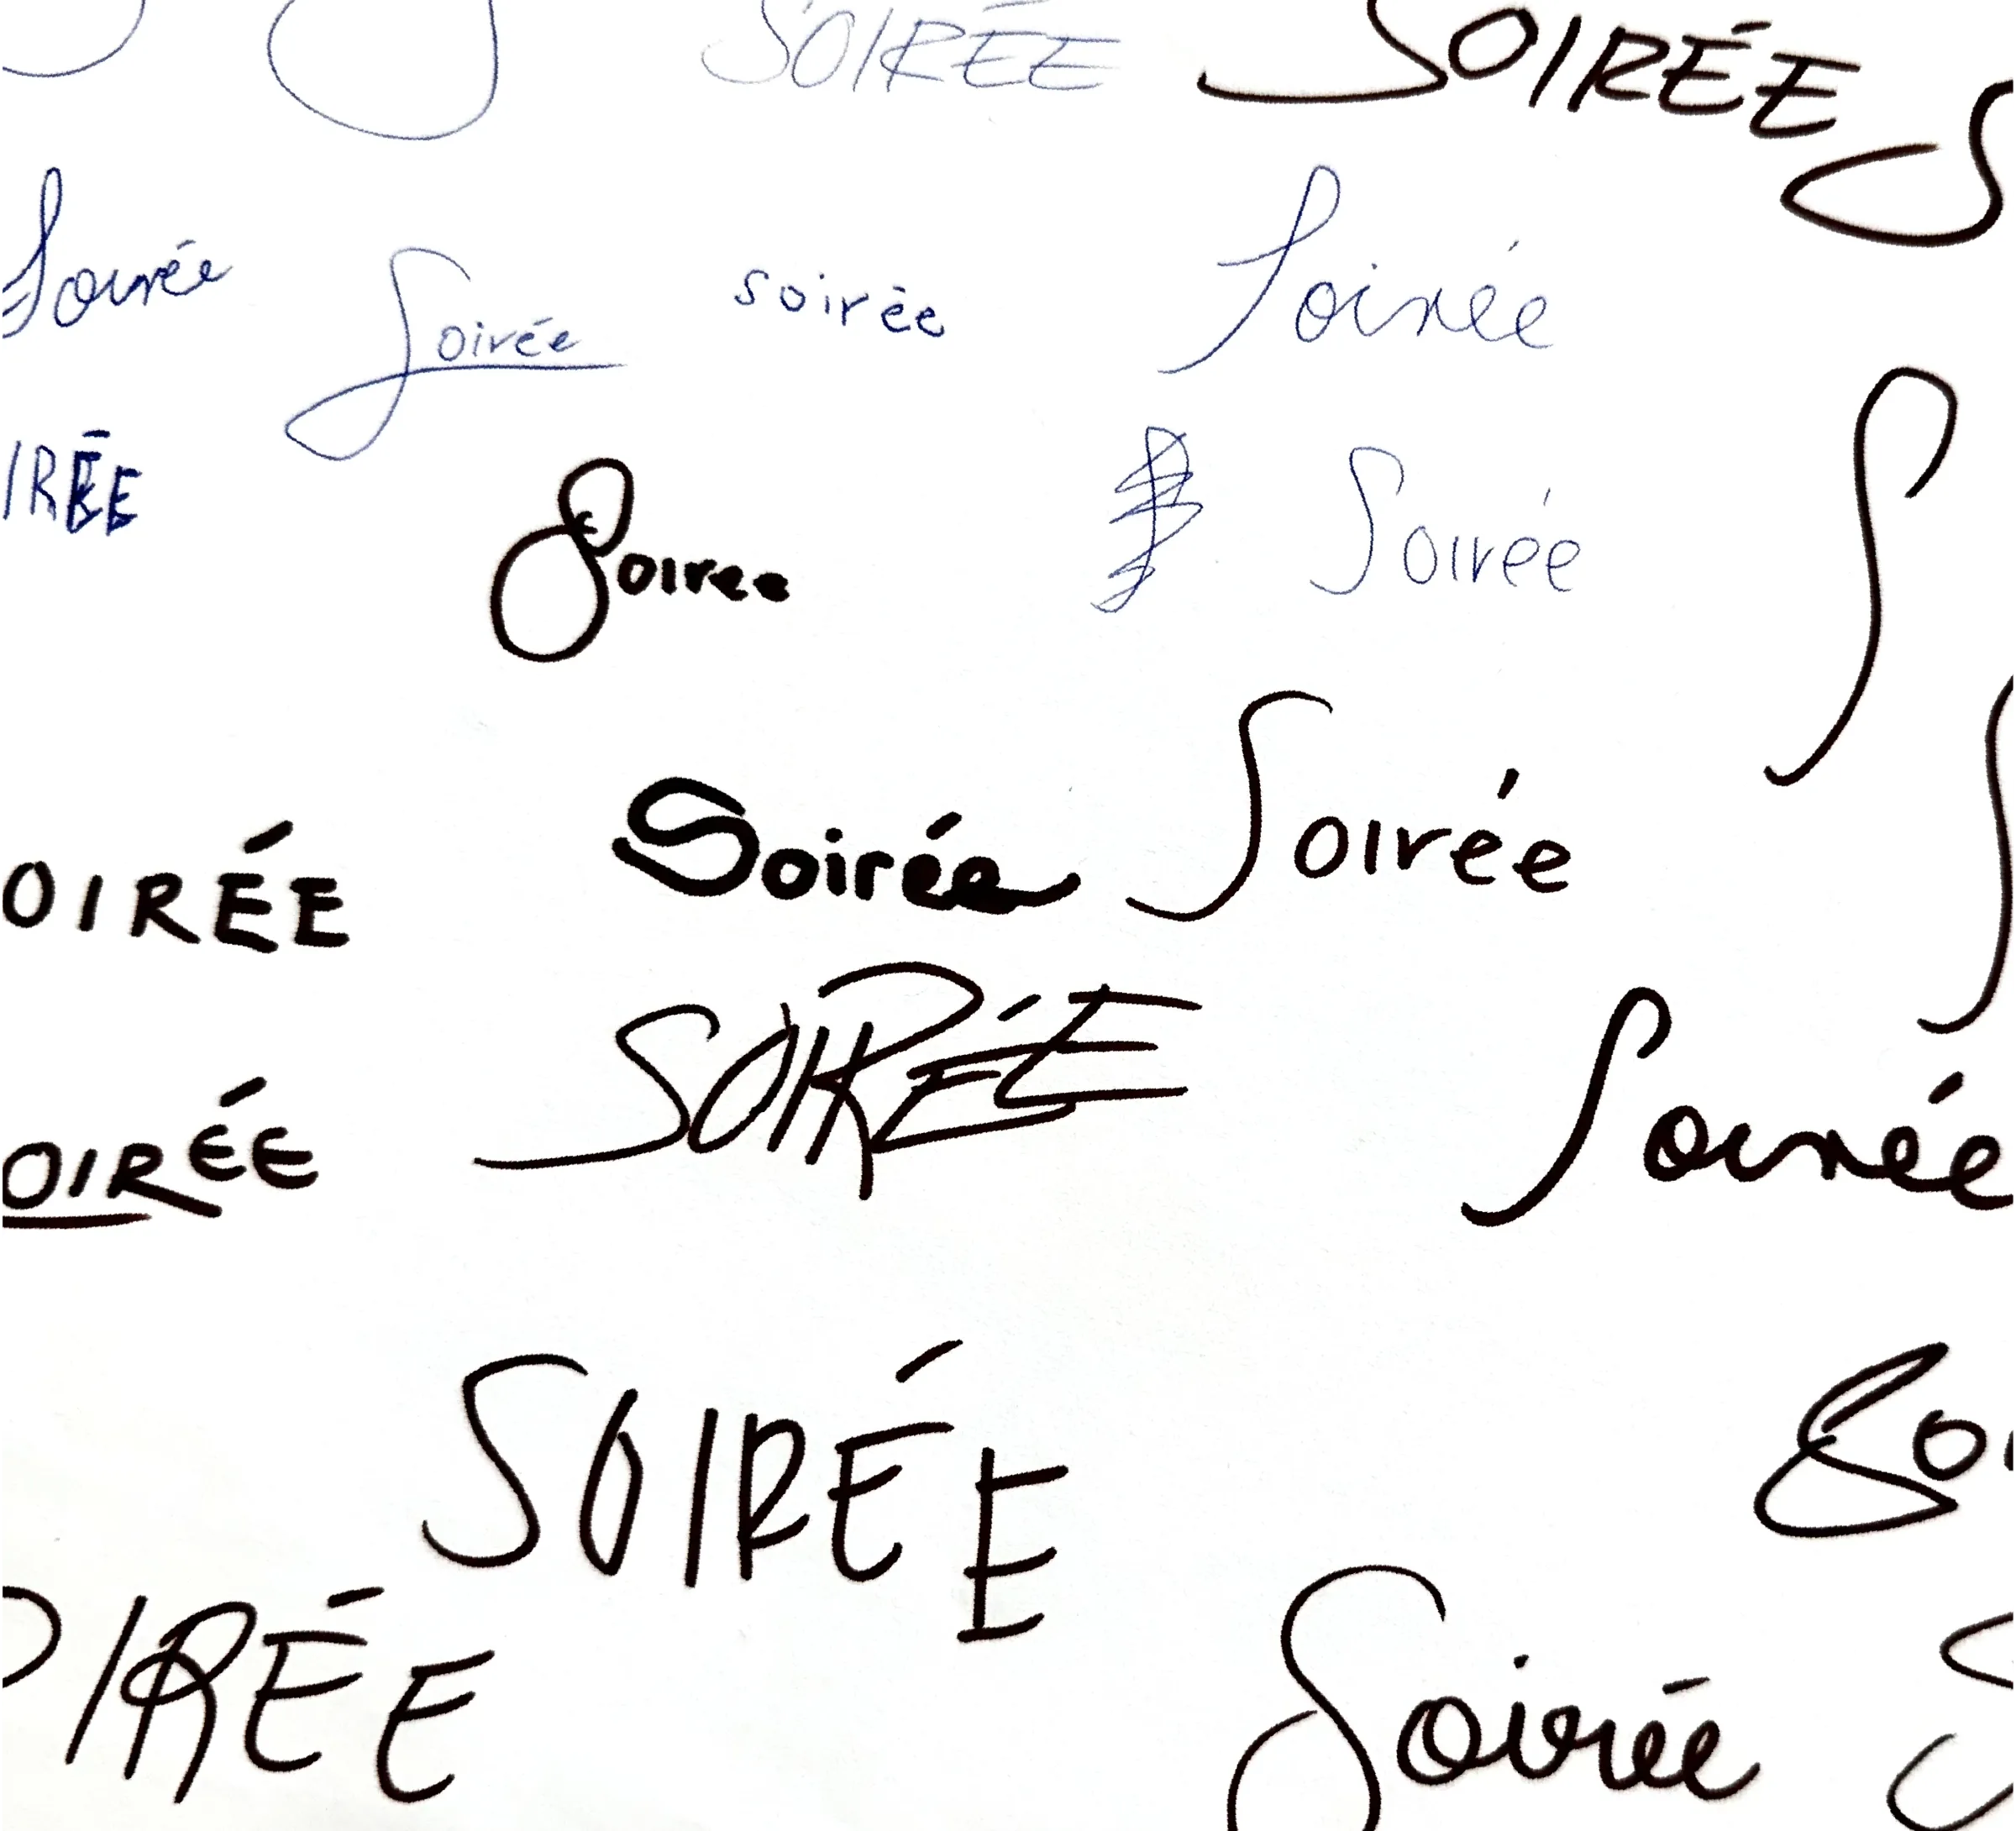 SOIRÉE SOIRÉE
Soirée Soirée soirée Soirée
IRÉE Soiree Soirée
OIRÉE Soirée Soirée
OIRÉE SOIRÉE Soirée
SOIRÉE So
OIRÉE Soirée